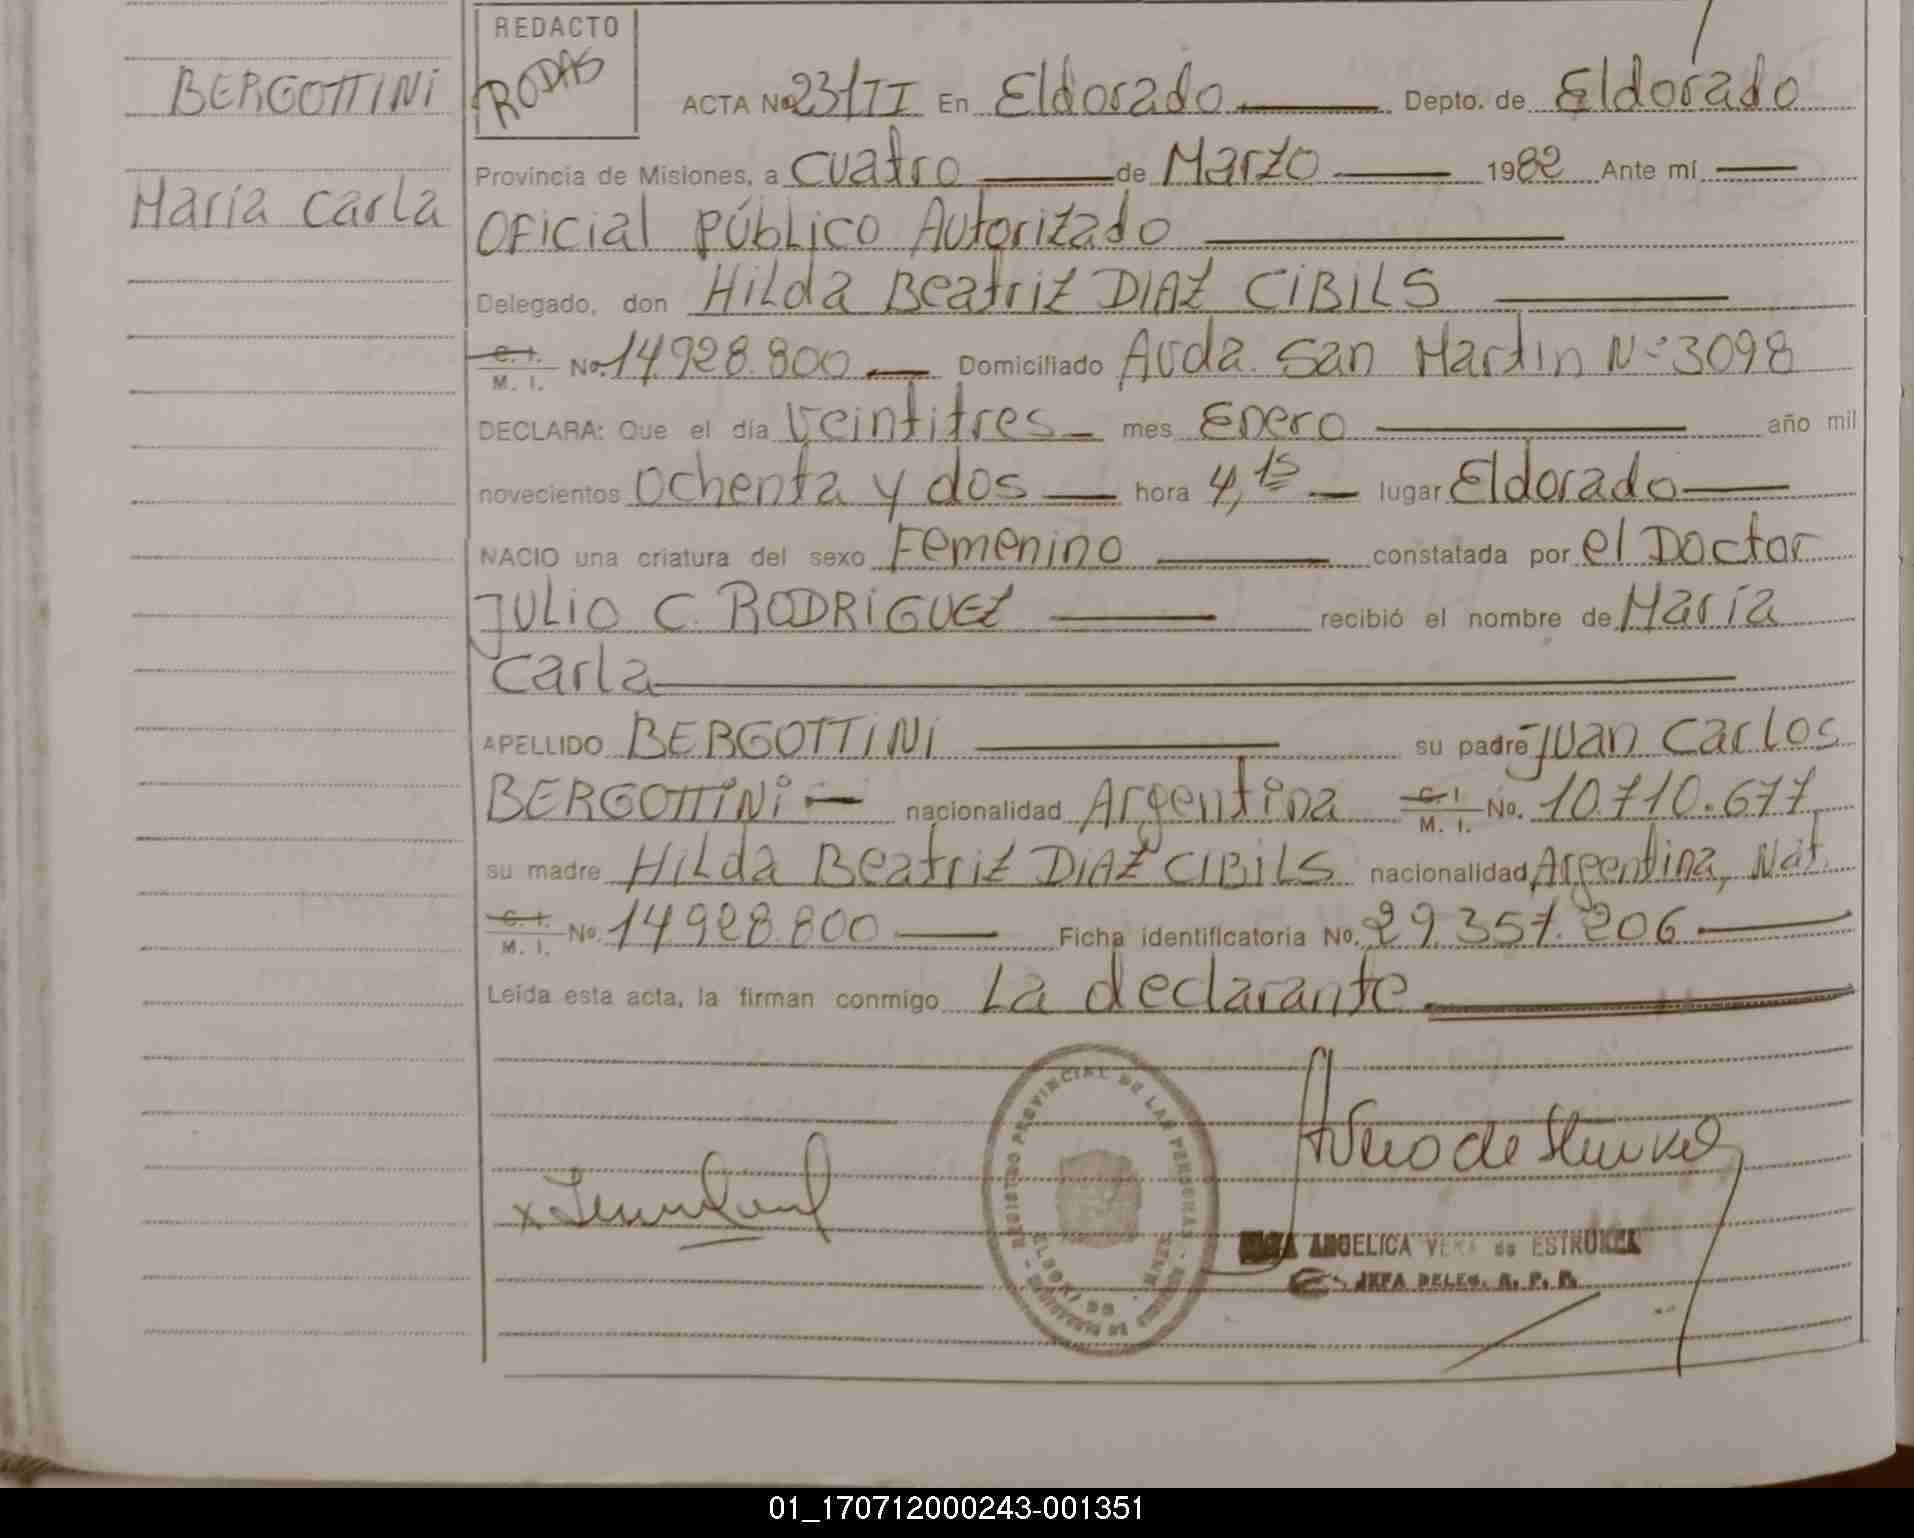 BERGOTTINI
María Carla
REDACTO
RODAS
ACTA No 23/II En Eldorado Depto. de Eldorado
Provincia de Misiones, a cuatro de Marzo 1982 Ante mí
Oficial Público Autorizado
Delegado, don Hilda Beatriz DIAZ CIBILS
C. I. M. I. No. 14.928.800 Domiciliado Avda. San Martin Nº 3098
DECLARA: Que el día veintitres mes Enero año mil
novecientos ochenta y dos hora 4,15 lugar Eldorado
NACIO una criatura del sexo Femenino constatada por el Doctor
JULIO C. RODRIGUEZ recibió el nombre de María
Carla
APELLIDO BERGOTTINI su padre Juan Carlos
BERGOTTINI nacionalidad Argentina C. I. M. I. No. 10.710.677
su madre Hilda Beatriz DIAZ CIBILS nacionalidad Argentina, Nat.
C. I. M. I. No. 14.928.800 Ficha identificatoria No. 29.357.206
Leída esta acta, la firman conmigo La declarante
REGISTRO PROVINCIAL DE LAS PERSONAS
ANGELICA VERA de ESTRUKEL
JEFA DELEG. R. P. P.
01_170712000243-001351